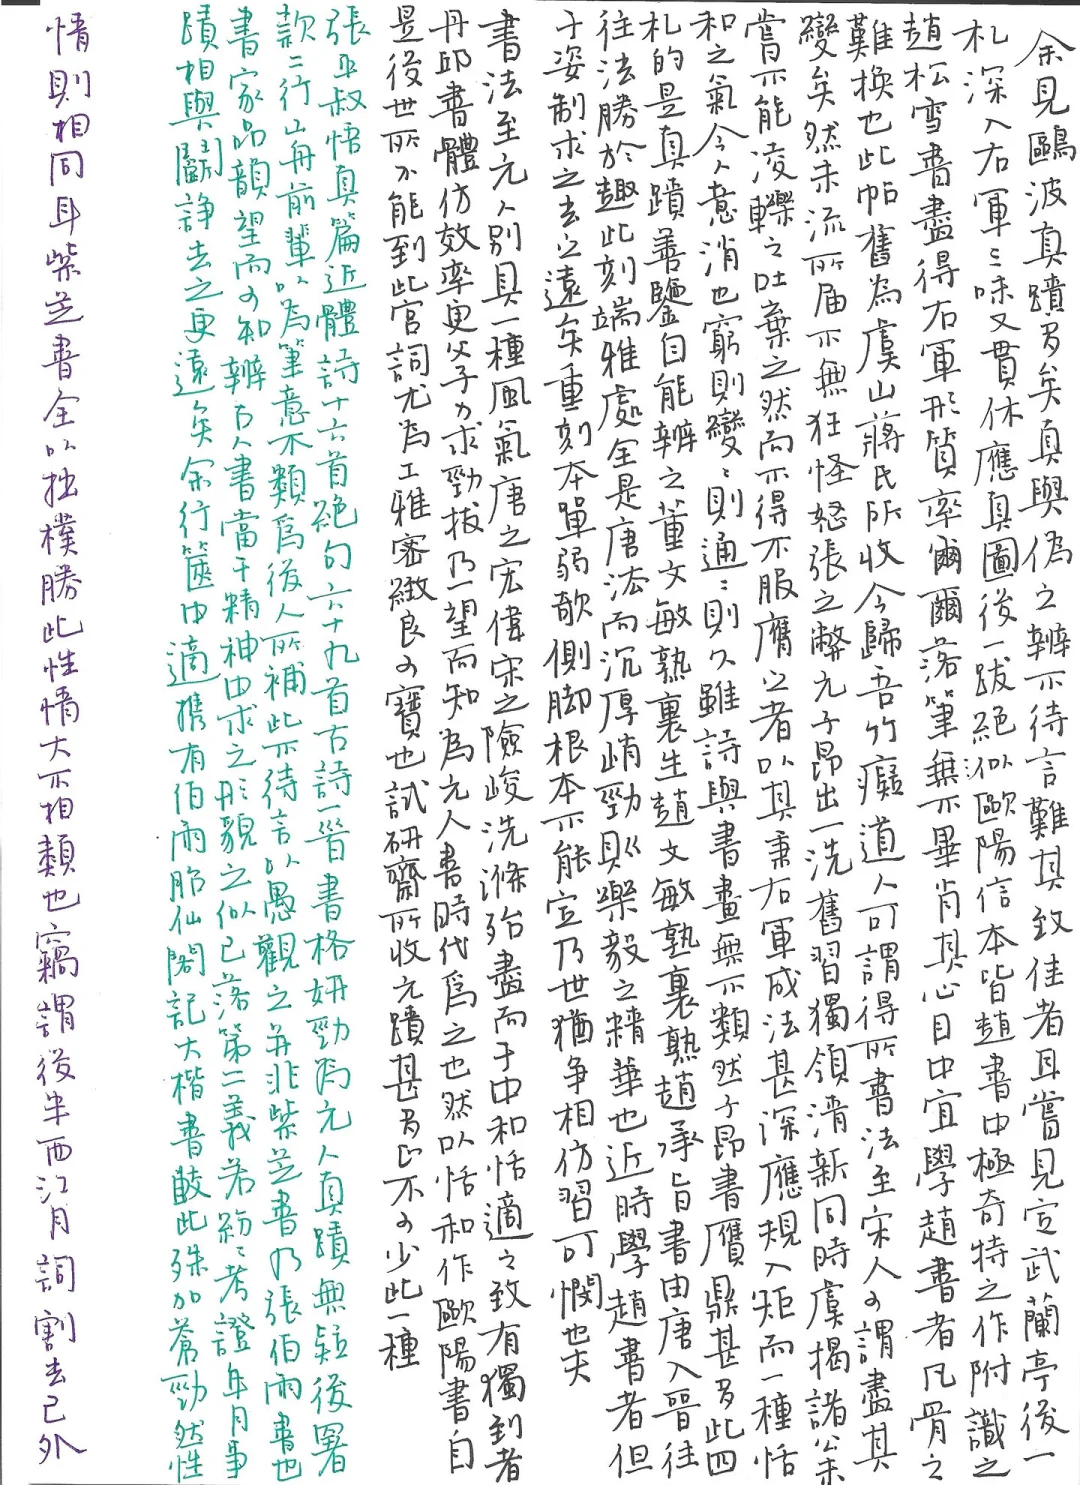 余見鷗波真蹟多矣真與偽之辨不待言難其致佳者耳嘗見定武蘭亭後一
札深入右軍三昧又貫休應真圖後一跋絕似歐陽信本皆趙書中極奇特之作附識之
趙松雪書盡得右軍形質率爾落筆無不畢肖其心目中宜學趙書者凡骨之
難換也此帖舊為虞山蔣氏所收今歸吾竹癡道人可謂得所書法至宋人可謂盡其
變矣然未流所屆不無狂怪怒張之弊元子昂出一洗舊習獨領清新同時虞揭諸公亦
嘗不能淩轢之吐棄之然而不得不服膺之者以其秉右軍成法甚深應規入矩而一種恬
和之氣令人意消也窮則變:則通:則久雖詩與書畫無不類然子昂書贗鼎甚多此四
札的是真蹟善鑒自能辨之董文敏熟裏生趙文敏熟裏熟趙承旨書由唐入晉往
往法勝於趣此刻端雅處全是唐法而沉厚峭勁則樂毅之精華也近時學趙書者但
于姿制求之去之遠矣重刻本單弱欹側脚根本不能定乃世猶爭相仿習可憫也夫
書法至元人別具一種風氣唐之宏偉宋之險峻洗滌殆盡而于中和恬適之致有獨到者
丹邱書體仿效率更父子力求勁拔乃一望而知為元人書時代為之也然以恬和作歐陽書自
是後世所不能到此宮詞尤為工雅審緻良可寶也試研齋所收元蹟甚多正不可少此一種
張平叔悟真篇近體詩十六首絕句六十九首古詩一晉書格妍勁為元人真蹟無疑後署
款二行山舟前輩以為筆意不類為後人所補此不待言以愚觀之并非紫芝書乃張伯雨書也
書家品韻望而可知辨古人書當于精神中求之形貌之似已落第二義若紛:考證年月事
蹟相與鬭諍去之更遠矣余行篋中適攜有伯雨胎仙閣記大楷書較此殊加蒼勁然性
情則相同耳紫芝書全以拙樸勝此性情大不相類也竊謂後半西江月詞割去已外